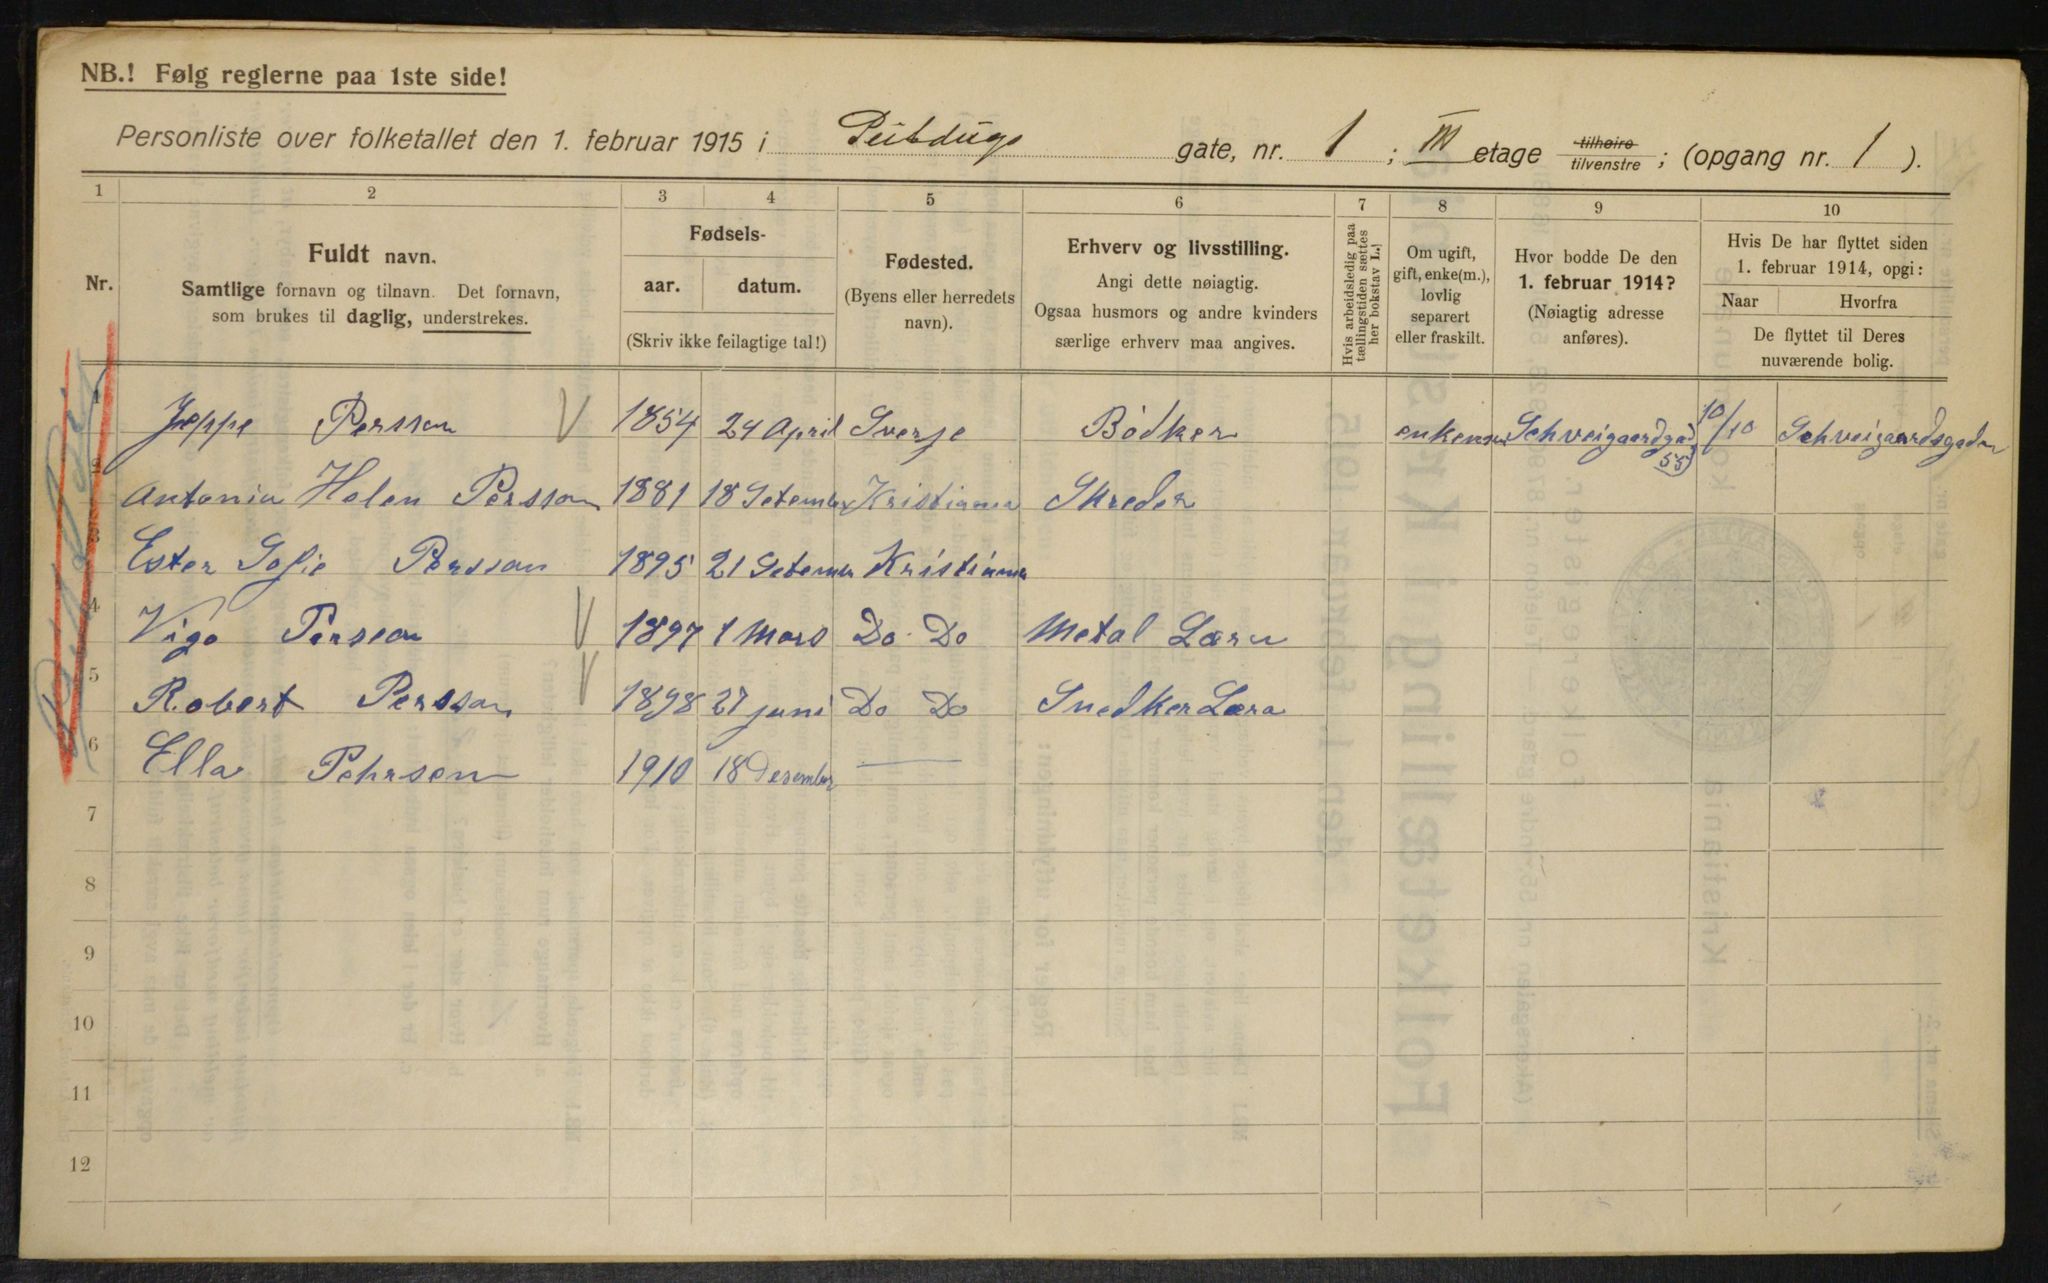 NB.! Følg reglerne paa 1ste side!
Personliste over folketallet den 1. februar 1915 i gate, nr. 1 ; III etage tilhøire tilvenstre ; (opgang nr. 1 ).
1 2 3 4 5 6 7 8 9 10
Nr.
Fuldt navn.
Samtlige fornavn og tilnavn. Det fornavn,
som brukes til daglig, understrekes.
Fødsels-
aar. datum.
(Skriv ikke feilagtige tal!)
Fødested.
(Byens eller herredets
navn).
Erhverv og livsstilling.
Angi dette nøiagtig.
Ogsaa husmors og andre kvinders
særlige erhverv maa angives.
Hvis arbeidsledig paa
tællingstiden sættes
her bokstav L.!
Om ugift,
gift, enke(m.),
lovlig
separert
eller fraskilt.
Hvor bodde De den
1. februar 1914?
(Nøiagtig adresse
anføres).
Hvis De har flyttet siden
1. februar 1914, opgi:
Naar Hvorfra
De flyttet til Deres
nuværende bolig.
1 Jeppe Persson 1854 24 April Sverje Bödker enkeman Schveigaardgad 55 10/10 Schveigaardsgaden
2 Antonia Helen Persson 1881 18 Setember Kristiania Skreder
3 Ester Sofie Persson 1895 21 Setember Kristiania
4 Vigo Persson 1897 1 Mars Do Do Metal Læru
5 Robert Persson 1898 27 juni Do Do Snedker Læra
6 Ella Pehrsen 1910 18 Desember —
7
8
9
10
11
12